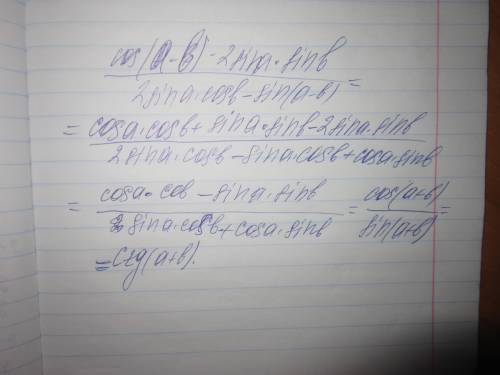 cos(a-b) - 2sina·sinb
2sina·cosb-sin(a-b) =
= cosa·cosb+sina·sinb-2sina·sinb
2sina·cosb-sina·cosb+cosa·sinb
= cosa·cob-sina·sinb = cos(a+b) =
sina·cosb+cosa·sinb sin(a+b)
=ctg(a+b).